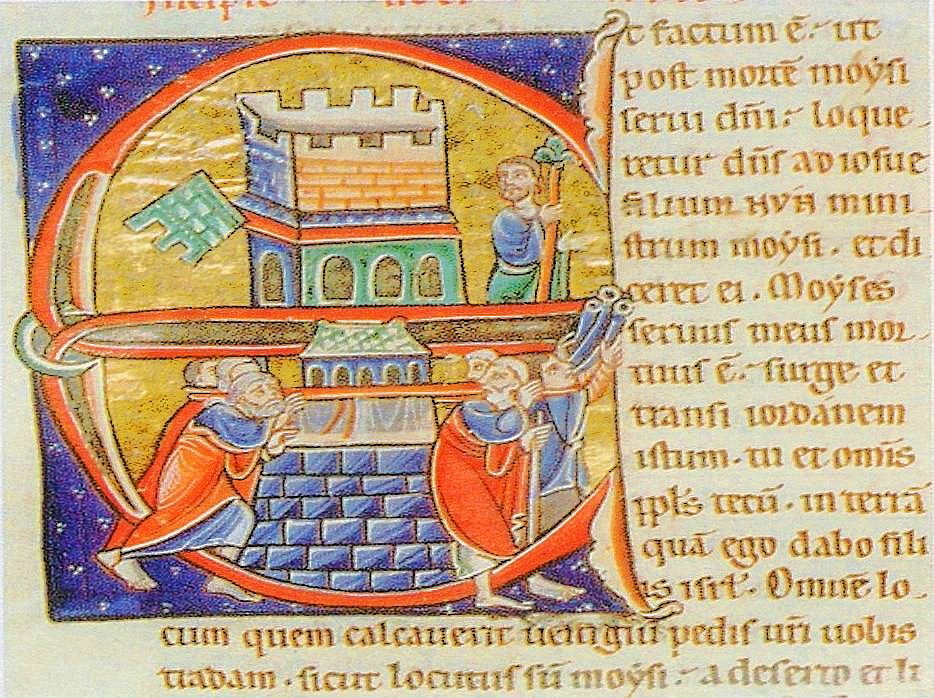 Incipit
Et factum ē. ut
post mortē moysi
serui dn̄i. loque
retur dn̄s ad iosue
filium nun mini
strum moysi. et di
ceret ei. Moyses
seruus meus mor
tuus ē. surge et
transi iordanem
istum. tu et omn̄is
ppl̄s tecū. in terrā
quā ego dabo fili
is isrl̄. Omnē lo
cum quem calcauerit uestigiū pedis ur̄i uobis
tradam. sicut locutus sū moysi. a deserto et li